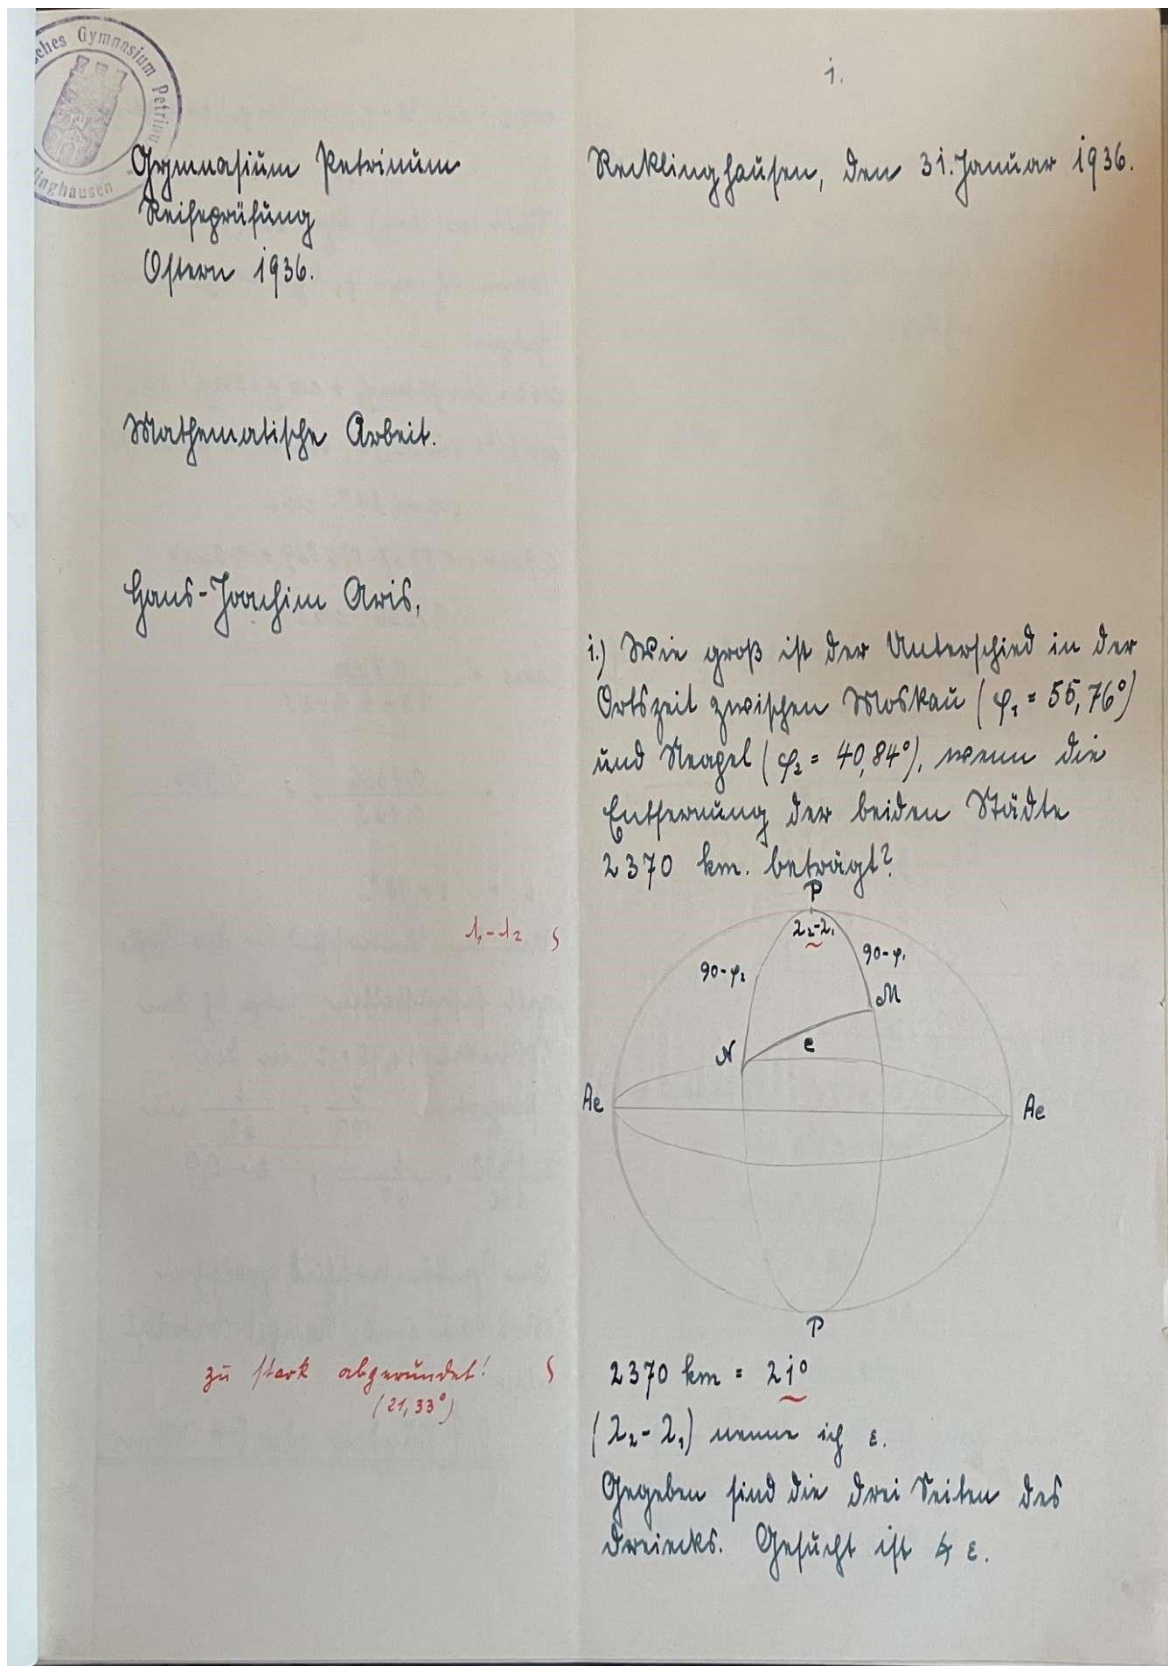 ches Gymnasium Petrinu
linghausen
1.
Gymnasium Petrinum
Reifeprüfung
Ostern 1936.
Recklinghausen, den 31. Januar 1936.
Mathematische Arbeit.
Hans-Joachim Aris,
1.) Wie groß ist der Unterschied in der
Ortszeit zwischen Moskau (φ₁ = 55,76°)
und Neapel (φ₂ = 40,84°), wenn die
Entfernung der beiden Städte
2370 km. beträgt?
P
λ₁-λ₂ ∫
λ₂-λ₁
90-φ₂
90-φ₁
M
N
e
Ae
Ae
P
zu stark abgerundet! ∫
(21,33°)
2370 km = 21°
(λ₂-λ₁) nenne ich ε.
Gegeben sind die drei Seiten des
Dreiecks. Gesucht ist ∢ ε.